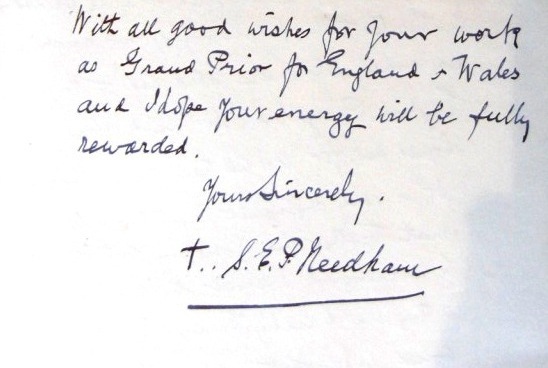 With all good wishes for your work
as Grand Prior for England & Wales
and I hope your energy will be fully
rewarded.
Yours Sincerely.
†.. S.E.P. Needham